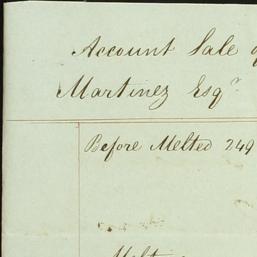 Account Sale of
Martinez Esqr.
Before Melted 249